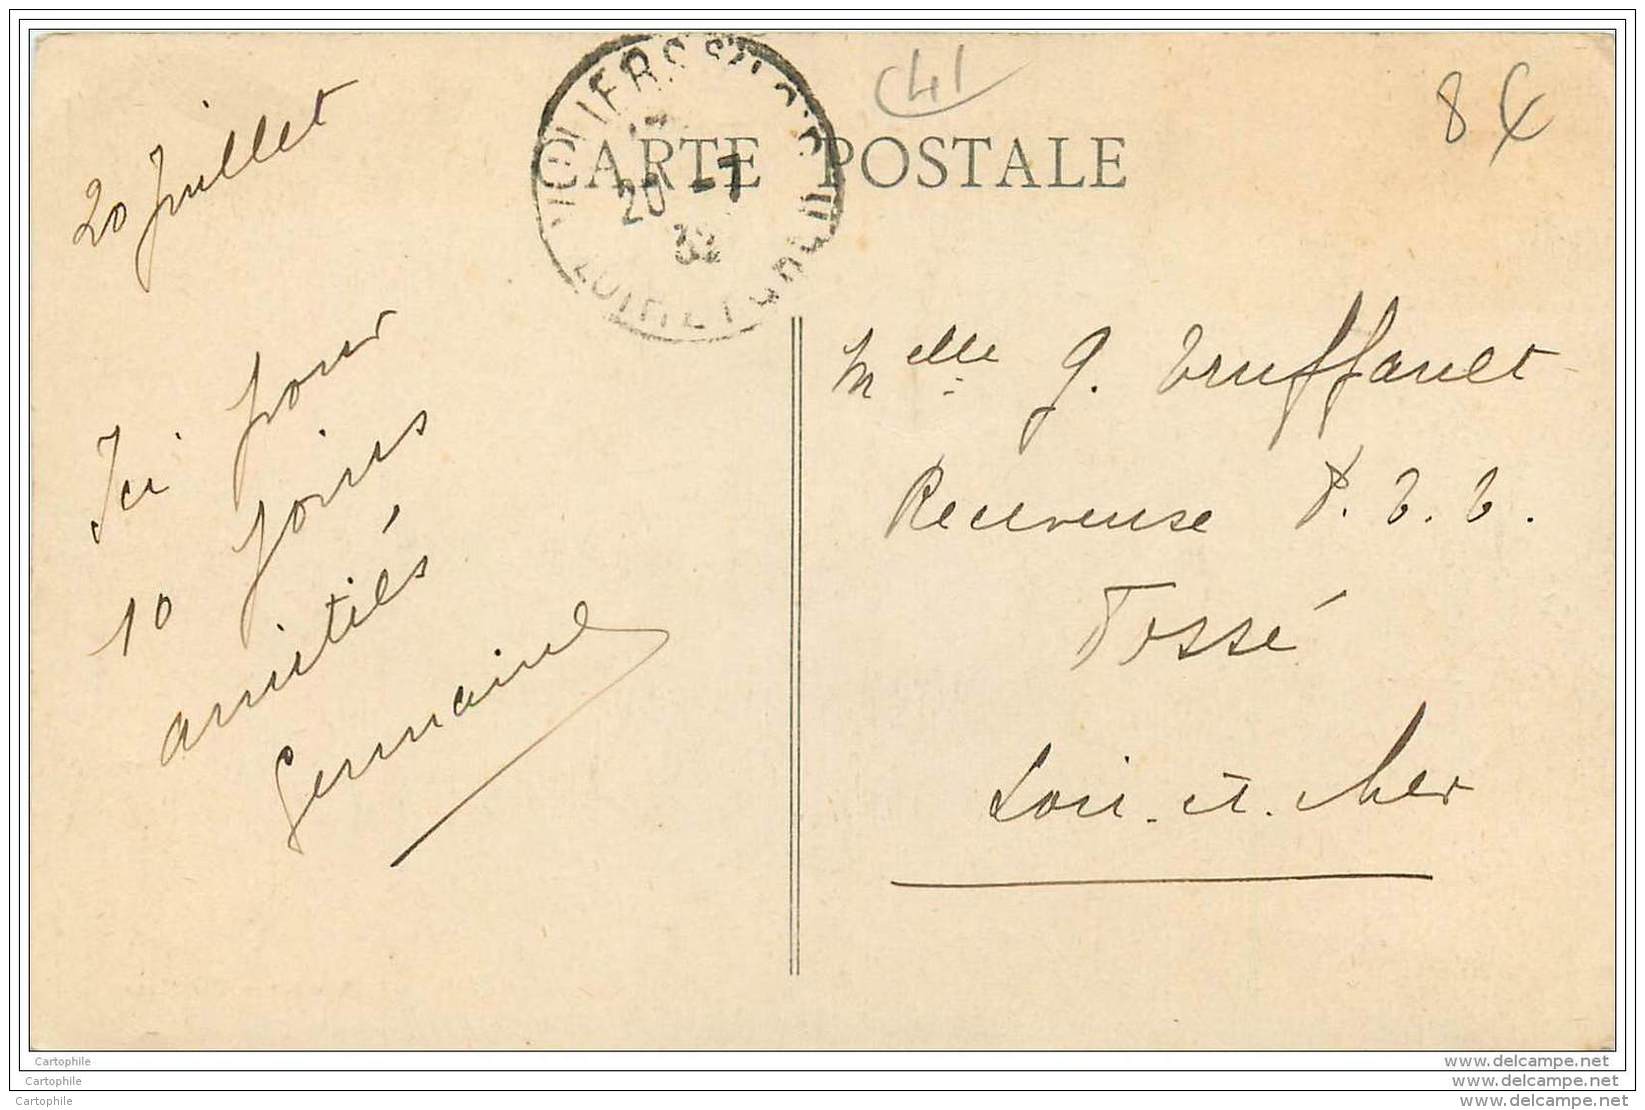 41
8€
CARTE POSTALE
20 -7
32
20 Juillet
Ici pour
10 jours
amitiés
Germaine
Melle G. Truffault
Receveuse P.T.T.
Fossé
Loir-et-Cher
Cartophile
Cartophile
Cartophile
www.delcampe.net
www.delcampe.net
www.delcampe.net